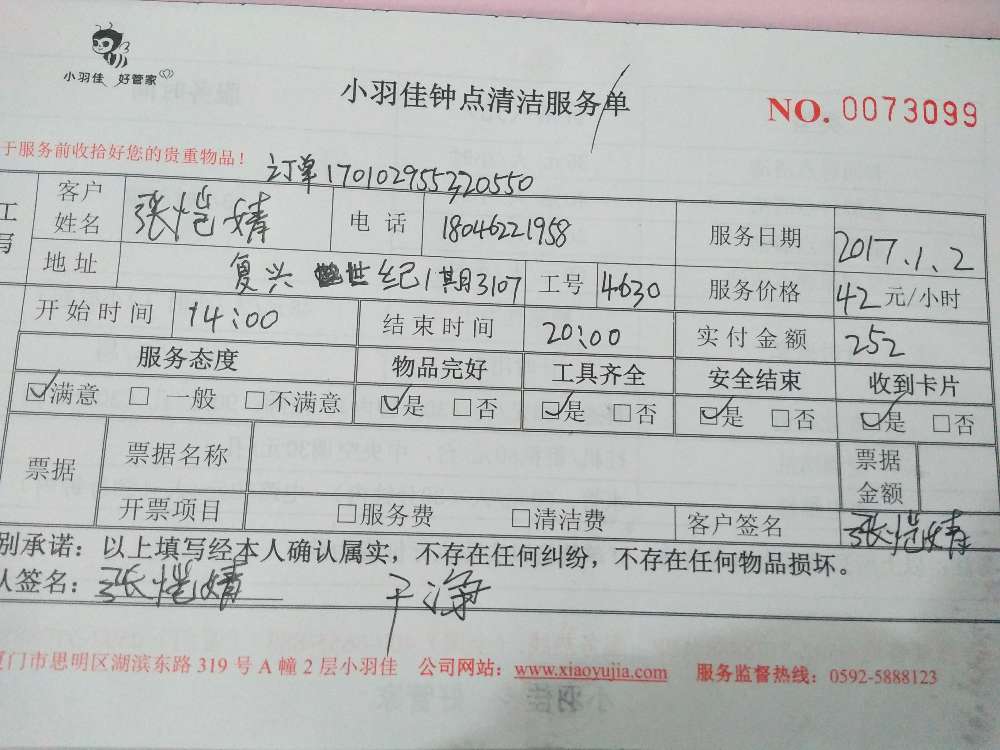 小羽佳 好管家
小羽佳钟点清洁服务单
NO. 0073099
于服务前收拾好您的贵重物品！
订单170102955320550
工 客户姓名 张恺婧 电话 18046221958 服务日期 2017.1.2
写 地址 复兴世纪1期3107 工号 4630 服务价格 42元/小时
开始时间 14:00 结束时间 20:00 实付金额 252
服务态度 物品完好 工具齐全 安全结束 收到卡片
☑满意 □一般 □不满意 ☑是 □否 ☑是 □否 ☑是 □否 ☑是 □否
票据 票据名称 票据金额
开票项目 □服务费 □清洁费 客户签名 张恺婧
别承诺：以上填写经本人确认属实，不存在任何纠纷，不存在任何物品损坏。
人签名：张恺婧 干净
厦门市思明区湖滨东路 319 号 A 幢 2 层小羽佳 公司网站：www.xiaoyujia.com 服务监督热线：0592-5888123